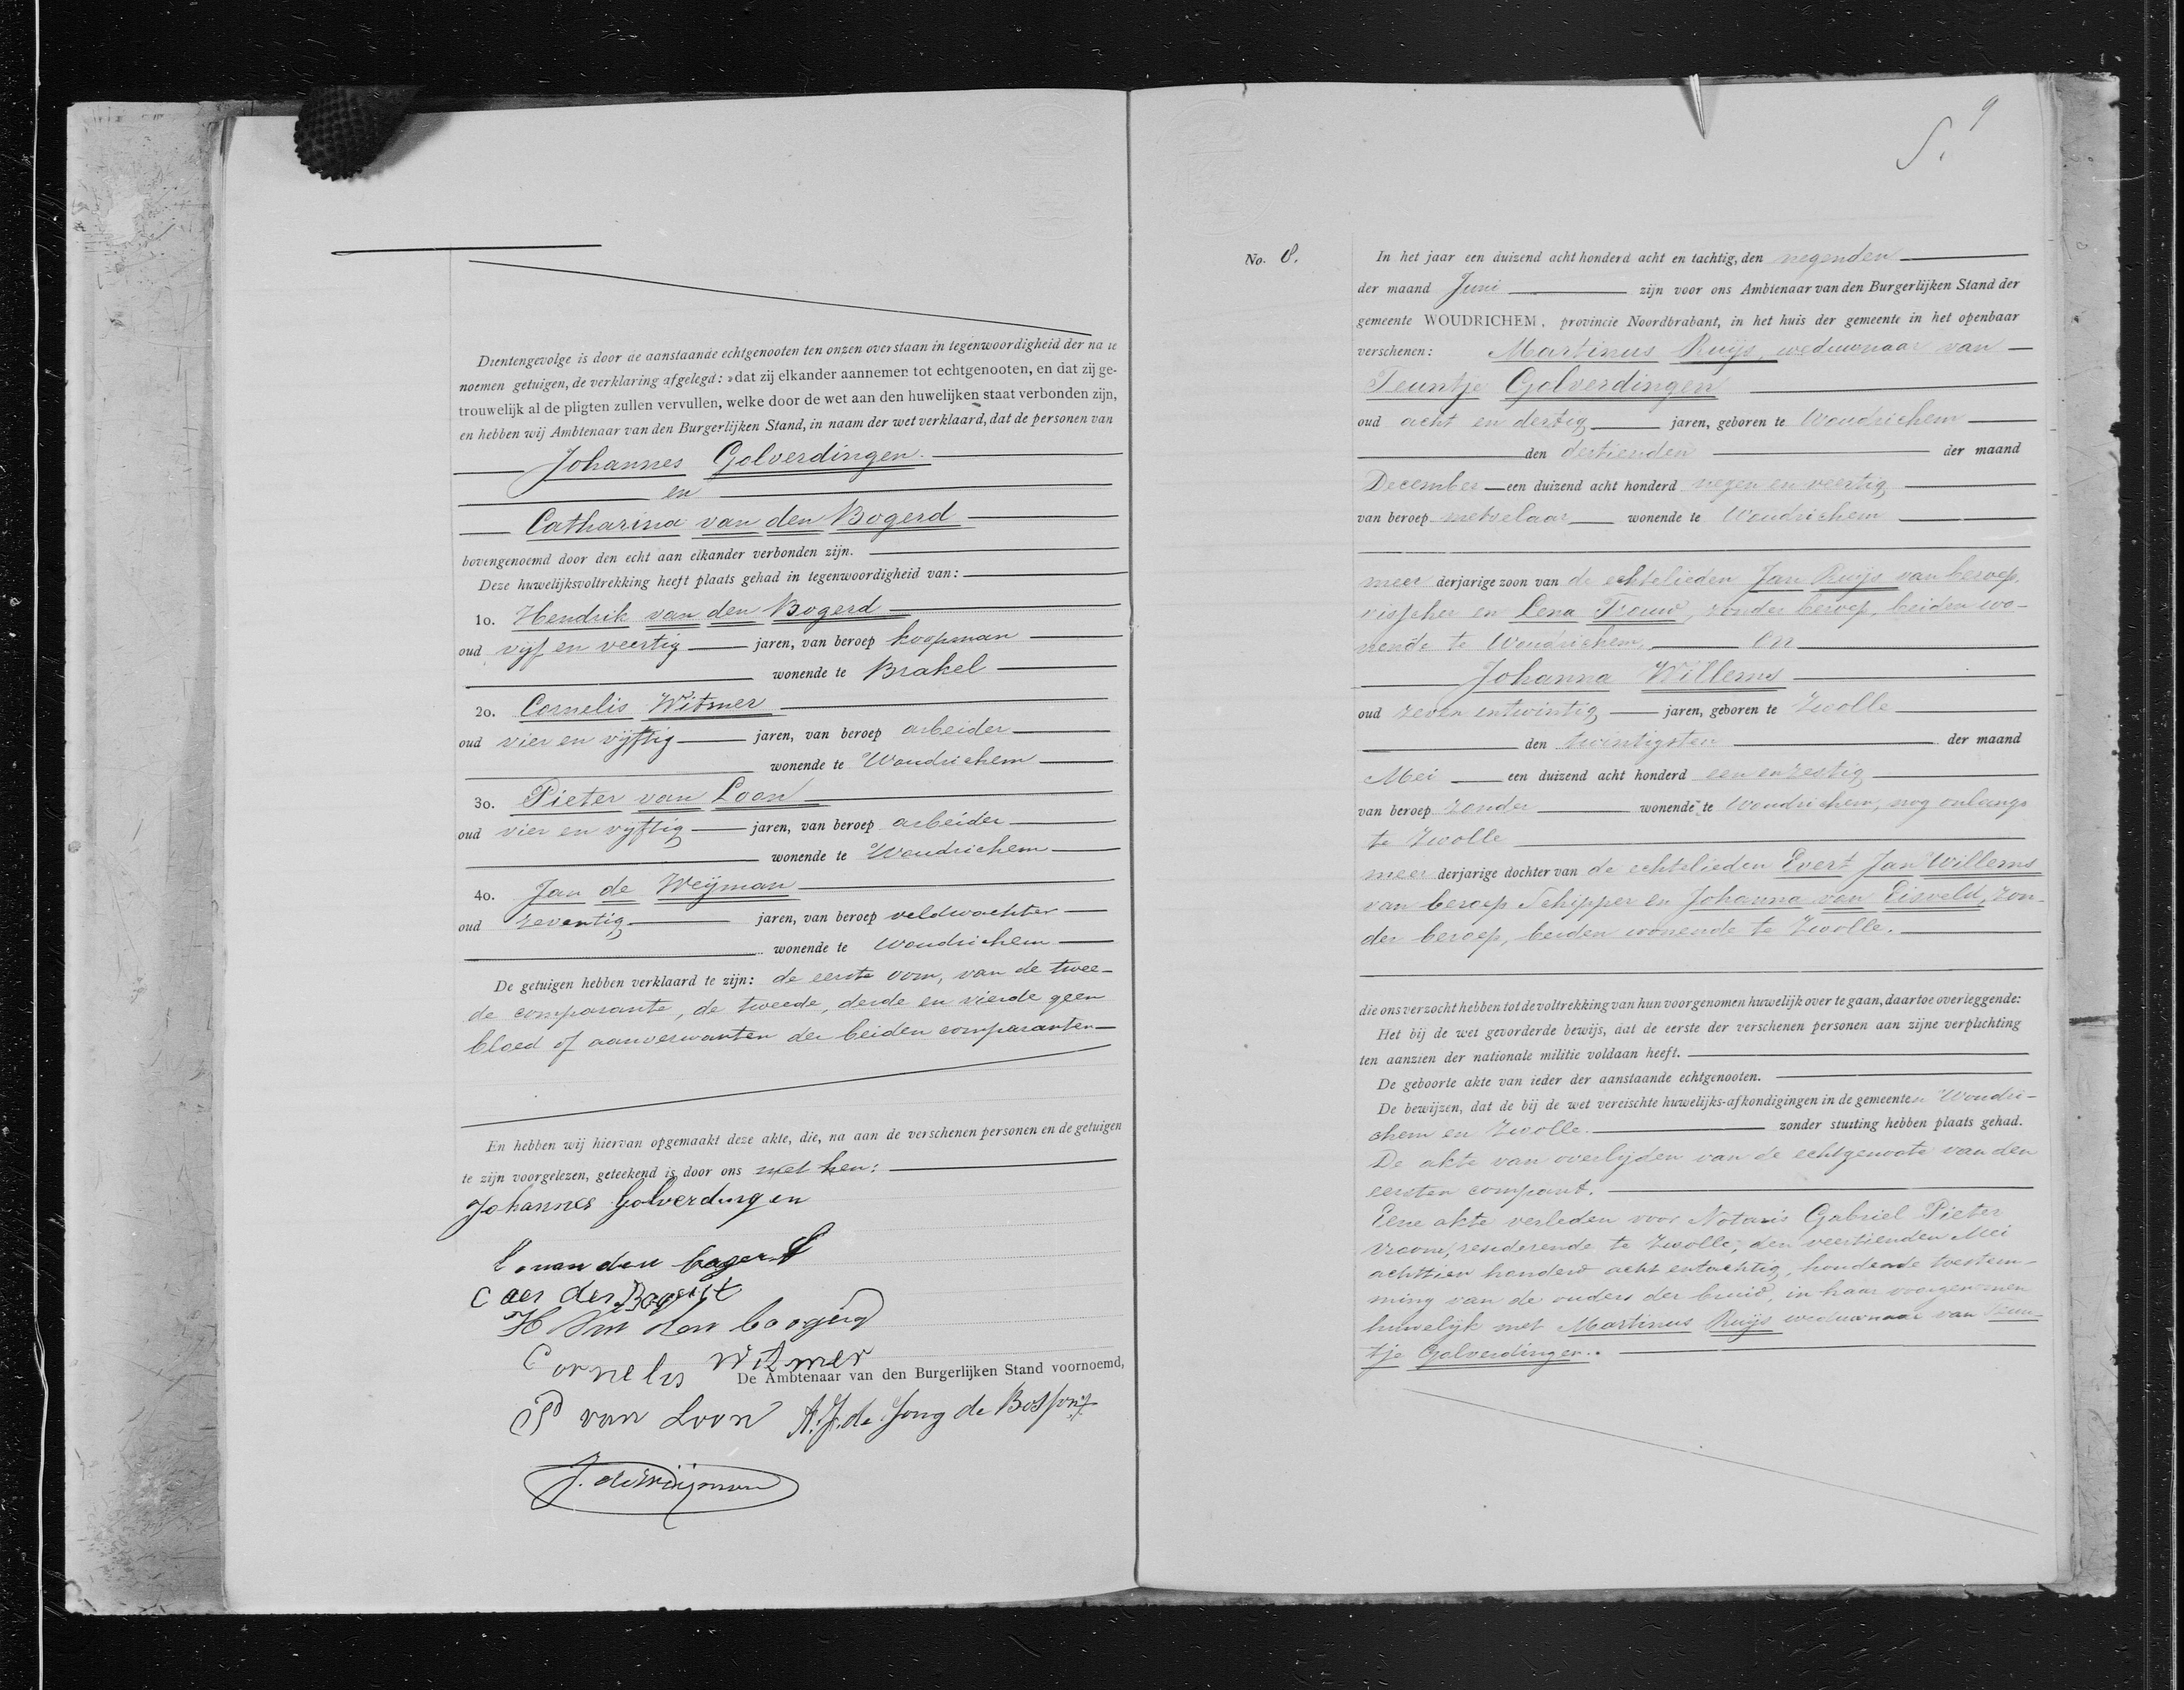 Dientengevolge is door de aanstaande echtgenooten ten onzen overstaan in tegenwoordigheid der na te
noemen getuigen, de verklaring afgelegd: »dat zij elkander aannemen tot echtgenooten, en dat zij ge-
trouwelijk al de pligten zullen vervullen, welke door de wet aan den huwelijken staat verbonden zijn,
en hebben wij Ambtenaar van den Burgerlijken Stand, in naam der wet verklaard, dat de personen van
Johannes Golverdingen.
en
Catharina van den Bogerd
bovengenoemd door den echt aan elkander verbonden zijn.
Deze huwelijksvoltrekking heeft plaats gehad in tegenwoordigheid van:
1o. Hendrik van den Bogerd
oud vijf en veertig jaren, van beroep koopman
wonende te Brakel
2o. Cornelis Witmer
oud vier en vijftig jaren, van beroep arbeider
wonende te Woudrichem
3o. Pieter van Loon
oud vier en vijftig jaren, van beroep arbeider
wonende te Woudrichem
4o. Jan de Weijman
oud zeventig jaren, van beroep veldwachter
wonende te Woudrichem
De getuigen hebben verklaard te zijn: de eerste oom, van de twee-
de comparante, de tweede, derde en vierde geen
bloed of aanverwanten der beiden comparanten
En hebben wij hiervan opgemaakt deze akte, die, na aan de verschenen personen en de getuigen
te zijn voorgelezen, geteekend is door ons met hen:
Johannes Golverdingen
van den
H den
Cornelis Witmer
De Ambtenaar van den Burgerlijken Stand voornoemd,
P van Loon A. J. de Jong de
J. de Weijman
9
No. 8.
In het jaar een duizend acht honderd acht en tachtig, den negenden
der maand Juni zijn voor ons Ambtenaar van den Burgerlijken Stand der
gemeente WOUDRICHEM, provincie Noordbrabant, in het huis der gemeente in het openbaar
verschenen: Martinus Ruijs, weduwnaar van
Teuntje Golverdingen
oud acht en dertig jaren, geboren te Woudrichem
den dertienden der maand
December een duizend acht honderd negen en veertig
van beroep metselaar wonende te Woudrichem
meer derjarige zoon van de echtelieden Jan Ruijs van beroep
visscher en Lena Trouw, zonder beroep, beiden wo-
nende te Woudrichem, en
Johanna Willems
oud zeven entwintig jaren, geboren te Zwolle
den twintigsten der maand
Mei een duizend acht honderd een en zestig
van beroep zonder wonende te Woudrichem, nog onlangs
te Zwolle
meer derjarige dochter van de echtelieden Evert Jan Willems
van beroep Schipper en Johanna van Eisveld, zon-
der beroep, beiden wonende te Zwolle.
die ons verzocht hebben tot de voltrekking van hun voorgenomen huwelijk over te gaan, daartoe overleggende:
Het bij de wet gevorderde bewijs, dat de eerste der verschenen personen aan zijne verplichting
ten aanzien der nationale militie voldaan heeft.
De geboorte akte van ieder der aanstaande echtgenooten.
De bewijzen, dat de bij de wet vereischte huwelijks-afkondigingen in de gemeenten Woudri-
chem en Zwolle. zonder stuiting hebben plaats gehad.
De akte van overlijden van de echtgenoote van den
eersten compant.
Eene akte verleden voor Notaris Gabriel Pieter
Vroom, residerende te Zwolle, den veertienden Mei
achttien honderd acht entachtig, houdende toestem-
ming van de ouders der bruid, in haar voorgenomen
huwelijk met Martinus Ruijs weduwnaar van Teun-
tje Golverdingen.